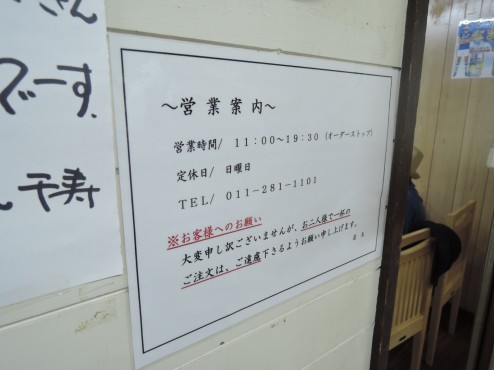 さん
でーす、
ん千寿
～営業案内～
営業時間／ 11：00～19：30（オーダーストップ）
定休日／ 日曜日
TEL／ 011－281－1101
※お客様へのお願い
大変申し訳ございませんが、お二人様で一杯の
ご注文は、ご遠慮下さるようお願い申し上げます。
店主